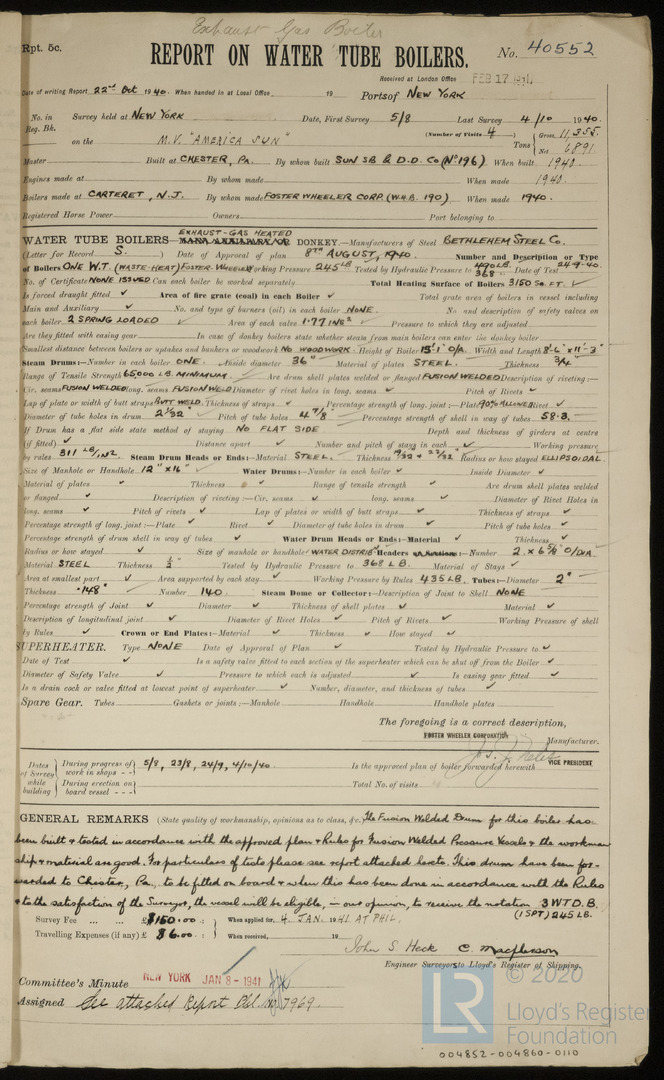 Exhaust Gas Boiler
Rpt. 5c.
REPORT ON WATER TUBE BOILERS.
No. 40552
Received at London Office FEB 17 1941
Date of writing Report 22nd Oct 1940. When handed in at Local Office 19 Port of NEW YORK
No. in Reg. Bk. Survey held at NEW YORK Date, First Survey 5/8 Last Survey 4/10 1940.
(Number of Visits 4)
on the M.V. "AMERICA SUN" Tons Gross 11,355. Net 6891.
Master Built at CHESTER, PA. By whom built SUN SB & D.D. CO (No 196) When built 1940.
Engines made at By whom made When made 1940.
Boilers made at CARTERET, N.J. By whom made FOSTER WHEELER CORP. (W.H.B. 190) When made 1940.
Registered Horse Power Owners Port belonging to
EXHAUST-GAS HEATED
WATER TUBE BOILERS—MAIN, AUXILIARY, OR DONKEY.—Manufacturers of Steel BETHLEHEM STEEL CO.
(Letter for Record S.) Date of Approval of plan 8TH AUGUST, 1940. Number and Description or Type
of Boilers ONE W.T. (WASTE-HEAT) FOSTER WHEELER Working Pressure 245 LB Tested by Hydraulic Pressure to 490 LB 368 Date of Test 24-9-40.
No. of Certificate NONE ISSUED Can each boiler be worked separately Total Heating Surface of Boilers 3150 SQ. FT. ✓
Is forced draught fitted ✓ Area of fire grate (coal) in each Boiler ✓ Total grate area of boilers in vessel including
Main and Auxiliary ✓ No. and type of burners (oil) in each boiler NONE. No. and description of safety valves on
each boiler 2 SPRING LOADED ✓ Area of each valve 1.77 INS² ✓ Pressure to which they are adjusted
Are they fitted with easing gear In case of donkey boilers state whether steam from main boilers can enter the donkey boiler
Smallest distance between boilers or uptakes and bunkers or woodwork NO WOODWORK. Height of Boiler 15'1" O/A. Width and Length 8'-6" x 11'-3"
Steam Drums:—Number in each boiler ONE. Inside diameter 36" Material of plates STEEL. Thickness 3/4"
Range of Tensile Strength 65,000 LB. MINIMUM. Are drum shell plates welded or flanged FUSION WELDED Description of riveting:—
Cir. seams FUSION WELDED long. seams FUSION WELD Diameter of rivet holes in long. seams ✓ Pitch of Rivets ✓
Lap of plate or width of butt straps BUTT WELD. Thickness of straps ✓ Percentage strength of long. joint:—Plate 90% ALLOWED Rivet ✓
Diameter of tube holes in drum 2 1/32" Pitch of tube holes 4 7/8" Percentage strength of shell in way of tubes 58.3.
If Drum has a flat side state method of staying NO FLAT SIDE Depth and thickness of girders at centre
(if fitted) ✓ Distance apart ✓ Number and pitch of stays in each ✓ Working pressure
by rules 311 LB/IN². Steam Drum Heads or Ends:—Material STEEL. Thickness 19/32" & 23/32" Radius or how stayed ELLIPSOIDAL
Size of Manhole or Handhole 12" x 16" ✓ Water Drums:—Number in each boiler ✓ Inside Diameter ✓
Material of plates ✓ Thickness ✓ Range of tensile strength ✓ Are drum shell plates welded
or flanged ✓ Description of riveting:—Cir. seams ✓ long. seams ✓ Diameter of Rivet Holes in
long. seams ✓ Pitch of rivets ✓ Lap of plates or width of butt straps ✓ Thickness of straps ✓
Percentage strength of long. joint:—Plate ✓ Rivet ✓ Diameter of tube holes in drum ✓ Pitch of tube holes ✓
Percentage strength of drum shell in way of tubes ✓ Water Drum Heads or Ends:—Material ✓ Thickness ✓
Radius or how stayed ✓ Size of manhole or handhole WATER DISTRIBG Headers or Sections:—Number 2 x 6 5/8" O/DIA
Material STEEL Thickness 1/2" Tested by Hydraulic Pressure to 368 LB. Material of Stays ✓
Area at smallest part ✓ Area supported by each stay ✓ Working Pressure by Rules 435 LB. Tubes:—Diameter 2"
Thickness .148" Number 140. Steam Dome or Collector:—Description of Joint to Shell NONE
Percentage strength of Joint ✓ Diameter ✓ Thickness of shell plates ✓ Material ✓
Description of longitudinal joint ✓ Diameter of Rivet Holes ✓ Pitch of Rivets ✓ Working Pressure of shell
by Rules ✓ Crown or End Plates:—Material ✓ Thickness ✓ How stayed ✓
SUPERHEATER. Type NONE Date of Approval of Plan ✓ Tested by Hydraulic Pressure to ✓
Date of Test ✓ Is a safety valve fitted to each section of the superheater which can be shut off from the Boiler ✓
Diameter of Safety Valve ✓ Pressure to which each is adjusted ✓ Is easing gear fitted ✓
Is a drain cock or valve fitted at lowest point of superheater ✓ Number, diameter, and thickness of tubes ✓
Spare Gear. Tubes Gaskets or joints:—Manhole Handhole Handhole plates
The foregoing is a correct description,
FOSTER WHEELER CORPORATION Manufacturer.
VICE PRESIDENT
Dates of Survey while building
During progress of work in shops - - 5/8, 23/8, 24/9, 4/10/40 Is the approved plan of boiler forwarded herewith
During erection on board vessel - - - Total No. of visits
GENERAL REMARKS (State quality of workmanship, opinions as to class, &c.) The Fusion Welded Drum for this boiler has
been built & tested in accordance with the approved plan & Rules for Fusion Welded Pressure Vessels & the workman-
ship & material are good. For particulars of tests please see report attached hereto. This drum have been for-
warded to Chester, Pa., to be fitted on board & when this has been done in accordance with the Rules
& to the satisfaction of the Surveyor, the vessel will be eligible, in our opinion, to receive the notation 3 WTDB.
(1 SPT) 245 LB.
Survey Fee ... ... £ $150.00 : When applied for, 4 JAN. 1941 AT PHIL.
Travelling Expenses (if any) £ $6.00 : When received, 19
John S. Heck C. Macpherson
Engineer Surveyors to Lloyd's Register of Shipping.
Committee's Minute NEW YORK JAN 8 - 1941
Assigned See attached Report Phl. No. 7969.
LR
© 2020
Lloyd's Register
Foundation
004852-004860-0110